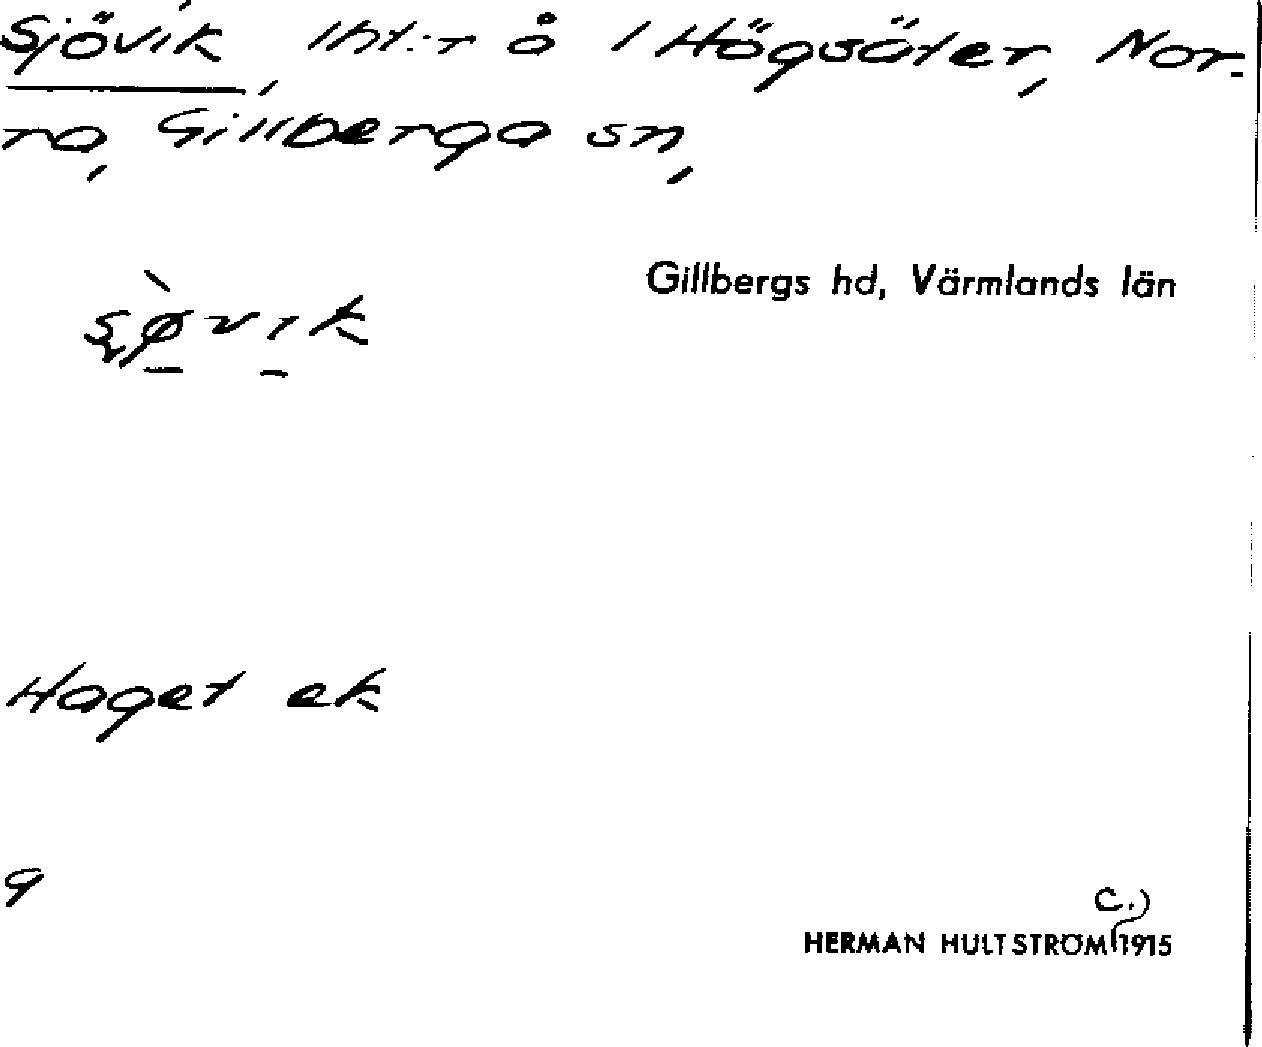 Sjövik, lht:r å 1 Högsäter, Nor-
ra, Gillberga sn,
Gillbergs hd, Värmlands län
Haget ek
9
C.)
HERMAN HULTSTRÖM 1915